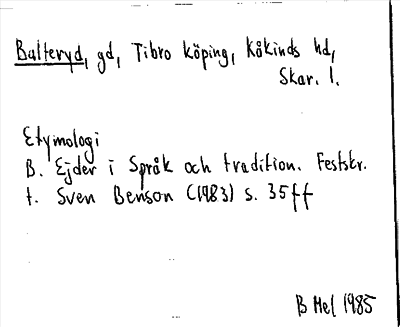 Balteryd, gd, Tibro köping, Kåkinds hd,
Skar. l.
Etymologi
B. Ejder i Språk och tradition. Festskr.
t. Sven Benson (1983) s. 35ff
B Hel 1985